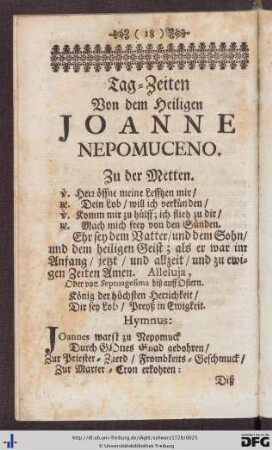 ( 18 )
Tag-Zeiten
Von dem Heiligen
JOANNE
NEPOMUCENO.
Zu der Metten.
℣. Herr öffne meine Lefftzen mir/
℟. Dein Lob/ will ich verkünden/
℣. Komm mir zu hülff; ich flieh zu dir/
℟. Mach mich frey von den Sünden.
Ehr sey dem Vatter/ und dem Sohn/
und dem heiligen Geist; als er war im
Anfang/ jetzt/ und allzeit/ und zu ewi-
gen Zeiten Amen. Alleluja,
Oder von Septuagesima biß auff Ostern.
König der höchsten Herrlichkeit/
Dir sey Lob/ Preyß in Ewigkeit.
Hymnus:
Joannes warst zu Nepomuck
Durch GOttes Gnad gebohren/
Zur Priester-Zierd/ Frombkeits-Geschmuck/
Zur Marter-Cron erkohren:
Diß
http://dl.ub.uni-freiburg.de/diglit/schwarz1728/0025
© Universitätsbibliothek Freiburg
gefördert durch die
DFG